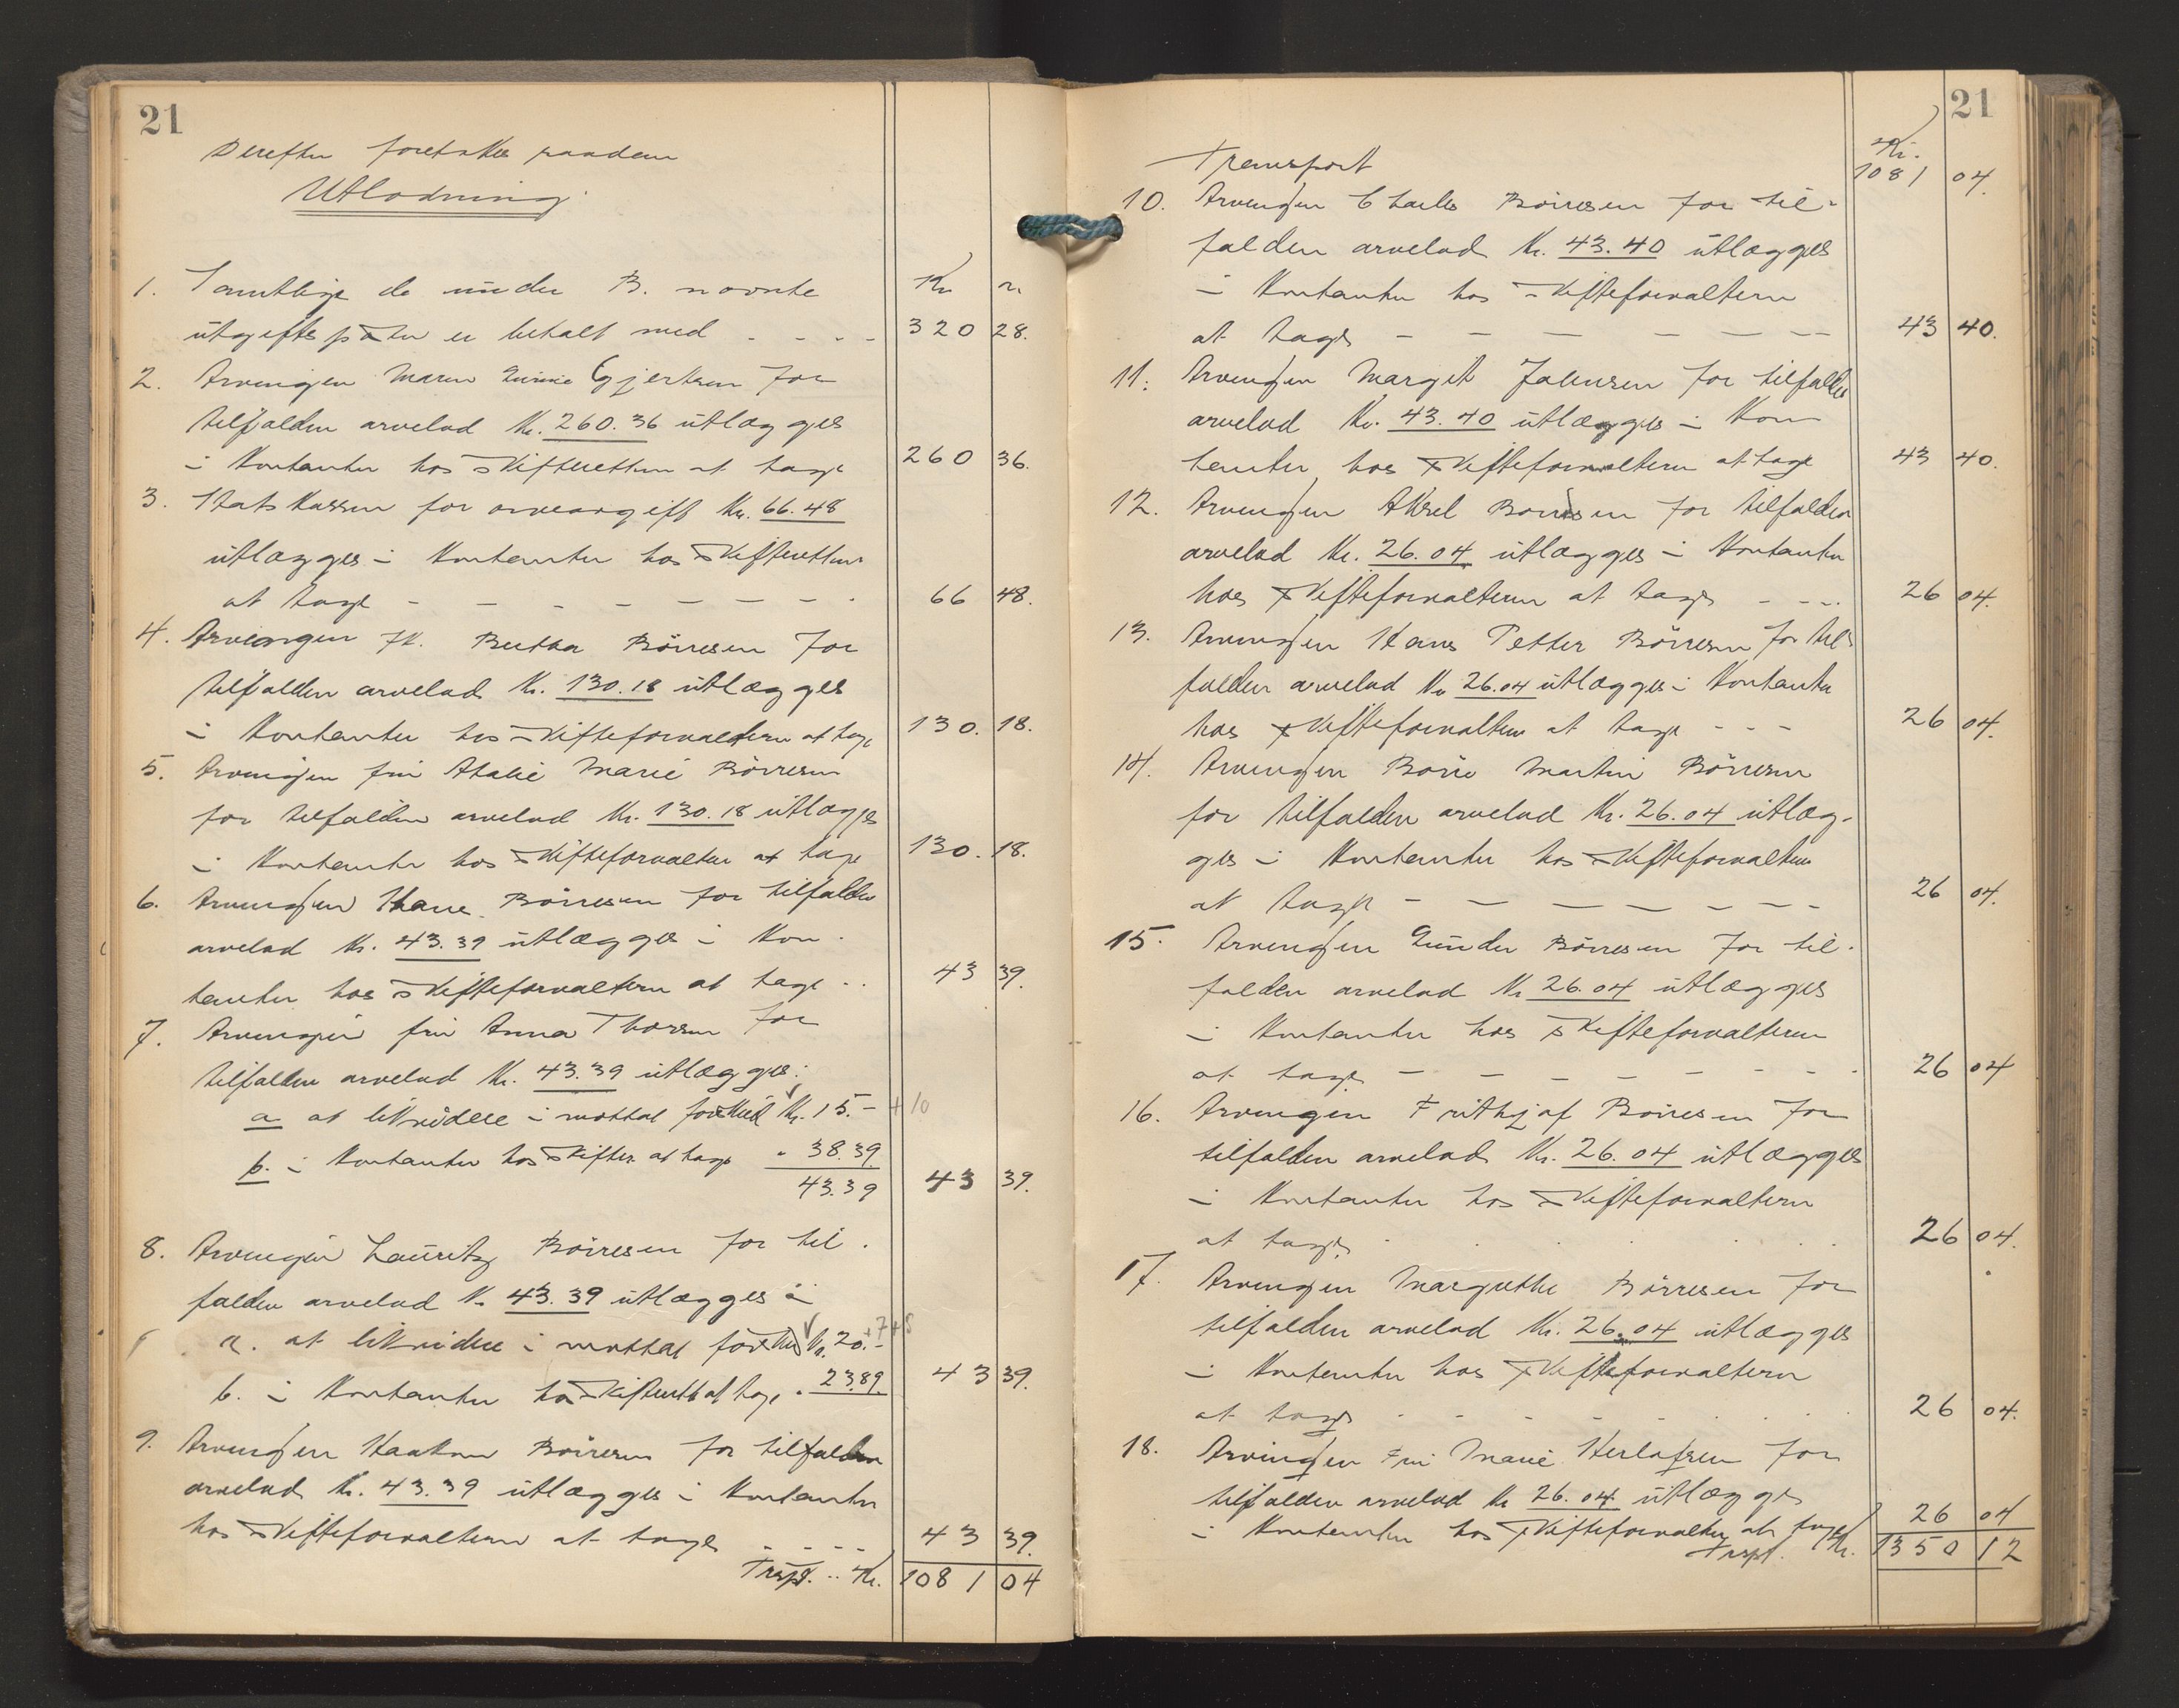 21
Derefter foretokes saadan
Utlodning
1. Samtlige de under B. nævnte Kr
utgiftsposter er betalt med - - - - 320 28.
2. Arvingen Maren Gjertsen for
tilfalden arvelod Kr. 260.36 utlægges
i Kontanter hos Skifteretten at tage 260 36.
3. Statskassen for arveavgift Kr. 66.48
utlægges i Kontanter hos Skifteretten
at tage - - - - - - - - 66 48.
4. Arvingen Fr. Berthe Börresen for
tilfalden arvelod Kr. 130.18 utlægges
i Kontanter hos Skifteforvalteren at tage 130. 18.
5. Arvingen fru Atalie Marie Börresen
for tilfalden arvelod Kr. 130.18 utlægges
i Kontanter hos Skifteforvalter at tage 130. 18.
6. Arvingen Hans Börresen for tilfalden
arvelod Kr. 43.39 utlægges i Kon-
tanter hos Skifteforvalteren at tage - - 43 39.
7. Arvingen fru Anna Thorsen for
tilfalden arvelod Kr. 43.39 utlægges:
a at likvidere i mottat forskud Kr. 15.- + 10
b. i Kontanter hos Skifter. at tage " 38.39
43.39 43 39.
8. Arvingen Lauritz Börresen for til-
falden arvelod Kr. 43.39 utlægges i
a. at likvidere i mottat forskud Kr. 20.- +7+8
b. i Kontanter hos Skifterett at tage " 23.89. 43 39.
9. Arvingen Haakon Börresen for tilfalden
arvelod Kr. 43.39 utlægges i Kontanter
hos Skifteforvalteren at tage - - - - 43 39.
Trspt. .. Kr. 1081 04
21
Kr.
Transport 1081 04.
10. Arvingen Charles Börresen for til-
falden arvelod Kr. 43.40 utlægges
i Kontanter hos Skifteforvalteren
at tage - - - - - - - 43 40.
11. Arvingen Margit Johnsen for tilfalden
arvelod Kr. 43.40 utlægges i Kon
tanter hos Skifteforvalteren at tage 43 40.
12. Arvingen Aksel Börresen for tilfalden
arvelod Kr. 26.04 utlægges i Kontanter
hos Skifteforvalteren at tage - - - 26 04.
13. Arvingen Hans Petter Börresen for til-
falden arvelod Kr 26.04 utlægges i Kontanter
hos Skifteforvalteren at tage - - - 26 04.
14. Arvingen Börre Martin Börresen
for tilfalden arvelod Kr. 26.04 utlæg-
ges i Kontanter hos Skifteforvalteren
at tage - - - - - - - - 26 04.
15. Arvingen Gunder Börresen for til-
falden arvelod Kr 26.04 utlægges
i Kontanter hos Skifteforvalteren
at tage - - - - - - - - 26 04
16. Arvingen Frithjof Börresen for
tilfalden arvelod Kr. 26.04 utlægges
i Kontanter hos Skifteforvalteren
at tage . . . . . 26 04.
17. Arvingen Margrethe Börresen for
tilfalden arvelod Kr. 26.04 utlægges
i Kontanter hos Skifteforvalteren
at tage - - - - - - - 26 04.
18. Arvingen Fru Marie Herlofsen for
tilfalden arvelod Kr 26.04 utlægges
i Kontanter hos Skifteforvalter at tage 26 04
Trspt. Kr. 1350 12